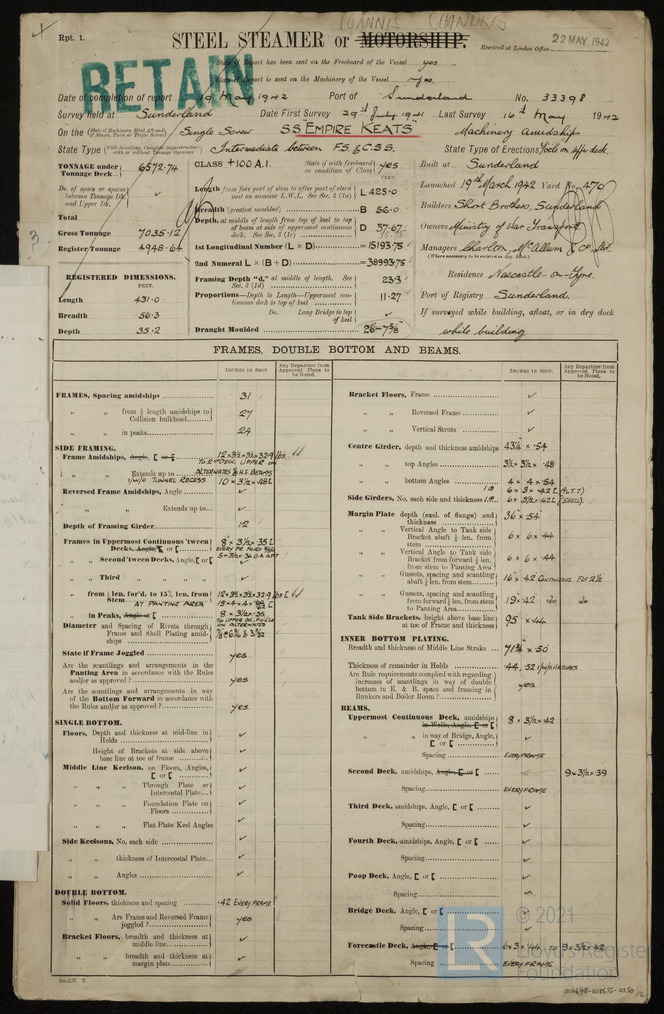 IOANNIS CHANDRIS
Rpt. 1.
STEEL STEAMER or MOTORSHIP.
Received at London Office
22 MAY 1942
RETAIN
State if Report has been sent on the Freeboard of the Vessel yes
State if Report is sent on the Machinery of the Vessel Yes
Date of completion of report 19 May 1942 Port of Sunderland No. 33398
Survey held at Sunderland Date First Survey 29th July 1941 Last Survey 16th May 1942
On the Single Screw S.S EMPIRE KEATS Machinery Amidships
State Type Intermediate between F.S. & C.S.S. State Type of Erections
TONNAGE under Tonnage Deck 6572.74
CLASS +100 A.1. State if with freeboard as condition of Class yes
Built at Sunderland
Launched 19th March 1942 Yard No. 470
Length from fore part of stem to after part of stern post on summer L.W.L. See Sec. 3 (1a) L 425.0
Do. of space or spaces between Tonnage Dk. and Upper Dk.
Builders Short Brothers, Sunderland
Breadth (greatest moulded) B 56.0
Total
Depth, at middle of length from top of keel to top of beam at side of uppermost continuous deck. See Sec. 3 (1c) D 37.67
Owners Ministry of War Transport
Gross Tonnage 7035.12
Managers Charlton, McAllum & Co. Ltd.
Register Tonnage 4948.64
1st Longitudinal Number (L × D) = 15193.75
(Where necessary to be entered in Reg. Book.)
2nd Numeral L × (B + D) = 38993.75
Residence Newcastle-on-Tyne.
REGISTERED DIMENSIONS.
FEET.
Framing Depth "d," at middle of length. See Sec. 3 (1d) 23.3
Port of Registry Sunderland.
Length 431.0
Proportions—Depth to Length—Uppermost continuous deck to top of keel 11.27
If surveyed while building, afloat, or in dry dock
Breadth 56.3
Do. Long Bridge to top of keel
Depth 35.2
Draught Moulded
while building
FRAMES, DOUBLE BOTTOM AND BEAMS.
INCHES IN SHIP.
Any Departure from Approved Plans to be Noted.
FRAMES, Spacing amidships 31
" " from ⅗ length amidships to Collision bulkhead 27
" " in peaks 24
SIDE FRAMING.
Frame Amidships, Angle, [ or [
" " Extends up to
1/w/o TUNNEL RECESS 10 × 3½ × .48 L
Reversed Frame Amidships, Angle
" " Extends up to
Depth of Framing Girder 12
Frames in Uppermost Continuous 'tween Decks, Angle, [ or [ 8 × 3½ × .35 L
" Second 'tween Decks, Angle, [ or [
" Third " " " "
" from ⅕ len. for'd. to 15% len. from Stem
AT PANTING AREA
" in Peaks, Angle or [
Diameter and Spacing of Rivets through Frame and Shell Plating amidships
State if Frame Joggled yes
Are the scantlings and arrangements in the Panting Area in accordance with the Rules and/or as approved ? yes
Are the scantlings and arrangements in way of the Bottom Forward in accordance with the Rules and/or as approved ? yes.
SINGLE BOTTOM.
Floors, Depth and thickness at mid-line in Holds
Height of Brackets at side above base line at toe of frame
Middle Line Keelson, on Floors, Angles, [ or [
" " Through Plate or Intercostal Plate
" " Foundation Plate on Floors
" " Flat Plate Keel Angles
Side Keelsons, No. each side
" " thickness of Intercostal Plate
" " Angles
DOUBLE BOTTOM.
Solid Floors, thickness and spacing .42 EVERY FRAME
" " Are Frame and Reversed Frame joggled ? yes
Bracket Floors, breadth and thickness at middle line
" " breadth and thickness at margin plate
Bracket Floors, Frame
" " Reversed Frame
" " Vertical Struts
Centre Girder, depth and thickness amidships 43¼ × .54
" " top Angles 3½ × 3½ × .48
" " bottom Angles 4 × 4 × .54
Side Girders, No. each side and thickness
Margin Plate depth (excl. of flange) and thickness 36 × .54
" " Vertical Angle to Tank side Bracket abaft ¼ len. from stem 6 × 6 × .44
" " Vertical Angle to Tank side Bracket from forward ¼ len. from stem to Panting Area 6 × 6 × .44
" " Gussets, spacing and scantling abaft ¼ len. from stem 16 × .42 CONTINUOUS FLG 2½
" " Gussets, spacing and scantling from forward ¼ len. from stem to Panting Area 19 × .42 do do
Tank Side Brackets, height above base line at toe of Frame and thickness 95 × .44
INNER BOTTOM PLATING.
Breadth and thickness of Middle Line Strake 71¾ × .50
Thickness of remainder in Holds
Are Rule requirements complied with regarding increases of scantlings in way of double bottom in E. & B. space and framing in Bunkers and Boiler Room ? yes
BEAMS.
Uppermost Continuous Deck, amidships in Wells, Angle, [ or [ 8 × 3½ × .42
" " in way of Bridge, Angle, [ or [
Spacing EVERY FRAME
Second Deck, amidships, Angle, [ or [ 9 × 3½ × .39
Spacing EVERY FRAME
Third Deck, amidships, Angle, [ or [
Spacing
Fourth Deck, amidships, Angle, [ or [
Spacing
Poop Deck, Angle, [ or [
Spacing
Bridge Deck, Angle, [ or [
Spacing
Forecastle Deck, Angle, [ or [ 6 × 3 × .44 TO 9 × 3½ × .42
Spacing EVERY FRAME
© 2021
Lloyd's Register
Foundation